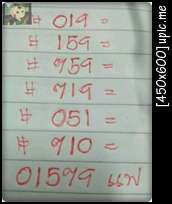 # 019 =
# 159 =
# 759 =
# 719 =
# 051 =
# 710 =
01579 แฟ
[450x600] upic.me